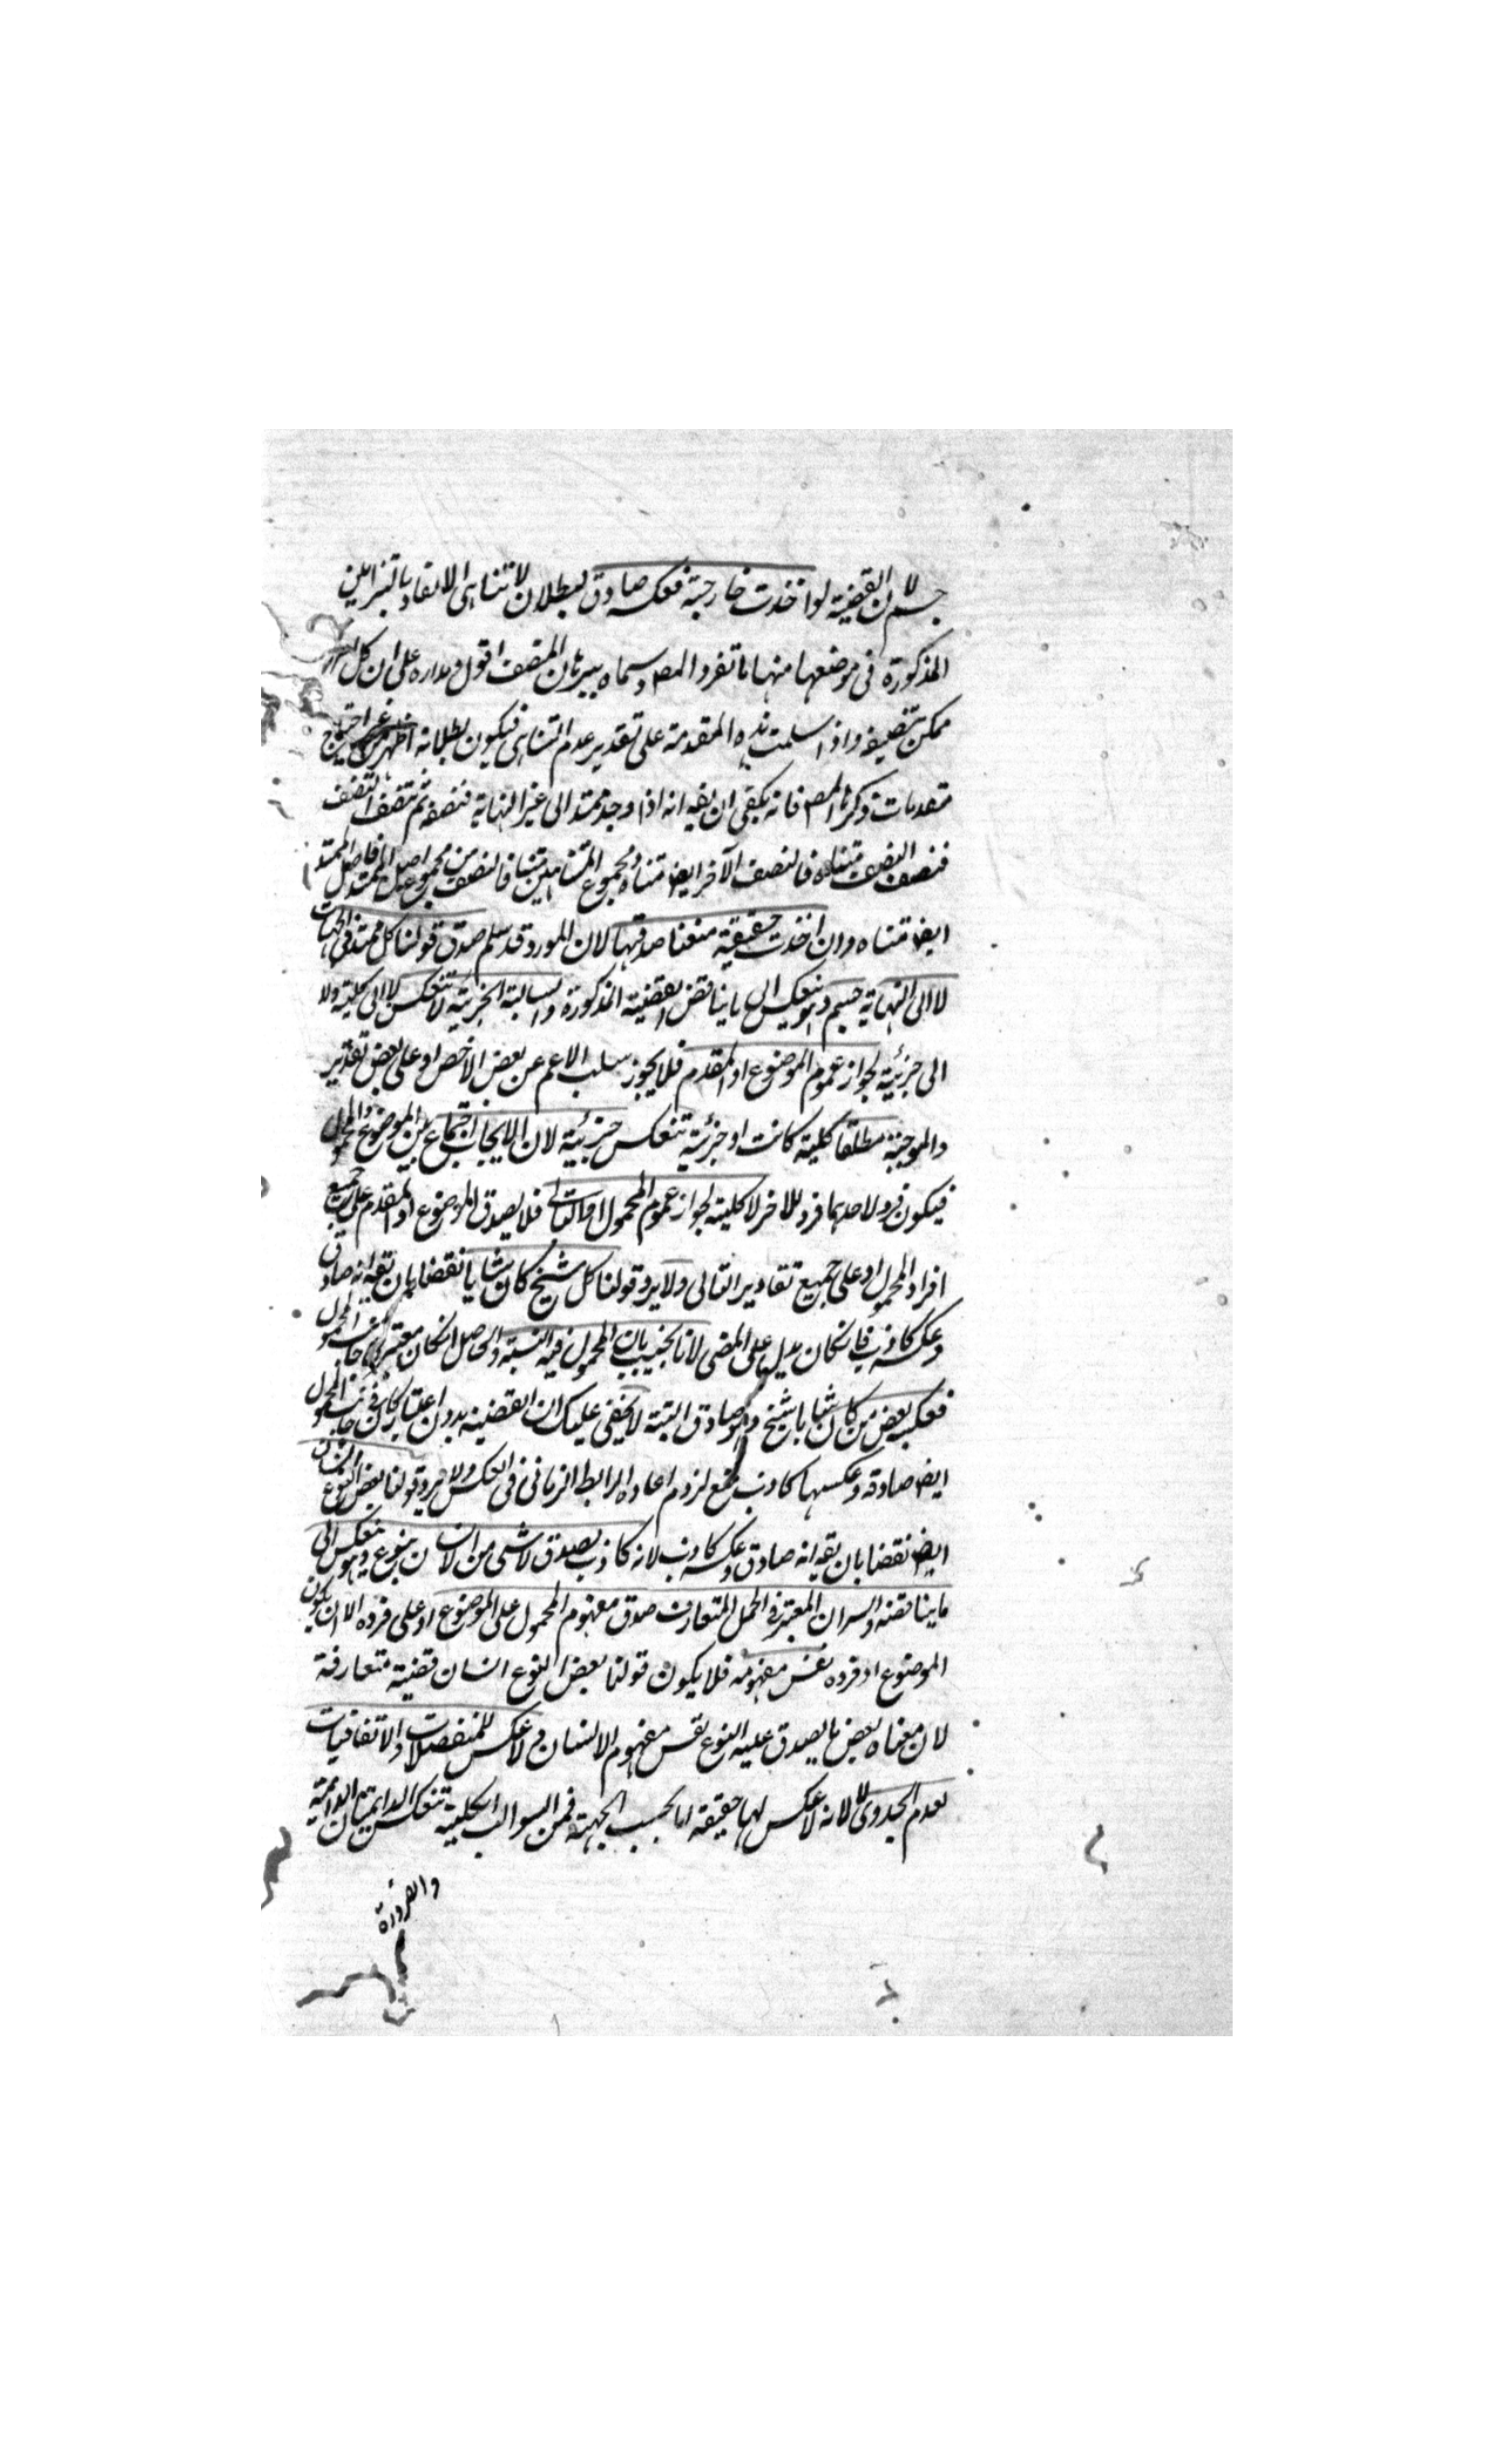 جسم لان القضية لو اخذت خارجية فعكسه صادق لبطلان لا تناهى الابعاد بالبراهين
المذكورة فى موضعها منها ما تفرد المص وسماه ببرهان المنصف اقول مداره على ان كل
ممكن تنصيفه واذا سلمت هذه المقدمة على تقدير عدم التناهى فيكون بطلانه اظهر من غير احتياج
مقدمات ذكرها المص فانه يكفى ان يقه انه اذا وجد ممتد الى غير النهاية فنصفه ثم تنصف النصف
فنصف النصف متناه فالنصف الآخر ايض متناه ومجموع المتناهيين متناه فالنصف من مجموع اصل الممتد فاصل الممتد
ايض متناه وان اخذت حقيقية منعنا صدقها لان المورد قد سلم صدق قولنا كل ممتد فى الجهات
لا الى النهاية جسم وهو ينعكس الى ما يناقض القضية المذكورة والسالبة الجزئية لا تنعكس لا الى كلية ولا
الى جزئية لجواز عموم الموضوع او المقدم فلا يجوز سلب الاعم عن بعض الاخص او على بعض تقدير
والموجبة مطلقا كلية كانت او جزئية تنعكس جزئية لان الايجاب اجتماع بين الموضوع والمحمول
فيكون فرد لاحدهما فرد للاخر لا كلية لجواز عموم المحمول او التالى فلا يصدق الموضوع او المقدم على جميع
افراد المحمول او على جميع تقادير التالى ولا يرد قولنا كل شيخ كان شابا نقضا بان يقه انه صادق
وعكسه كاذب فان كان يدل على المضى لانا نجيب بان المحمول فيه النسبة والحاصل ان كان معتبر فى جانب المحمول
فعكسه بعض من كان شابا شيخ وهو صادق البتة لا يخفى عليك ان القضية بدون اعتبار كان فى جانب المحمول
ايض صادقه وعكسها كاذب منع لزوم اعاده الرابط الزمانى فى العكس ولا يرد قولنا بعض النوع انسان
ايض نقضا بان يقه انه صادق وعكسه كاذب لانه كاذب يصدق لا شى من الانسان بنوع وهو ينعكس الى
ما يناقضه والسر ان المعتبر فى الحمل المتعارف صدق مفهوم المحمول على الموضوع او على فرده الا ان يكون
الموضوع او فرده نفس مفهومه فلا يكون قولنا بعض النوع انسان قضية متعارفة
لان معناه بعض ما يصدق عليه النوع نفس مفهوم الانسان ولا عكس للمنفصلات والاتفاقيات
لعدم الجدوى لا لانه لا عكس لها حقيقة اما بحسب الجهة فمن السوالب الكلية تنعكس الدايمتان الدائمة
والضرورة